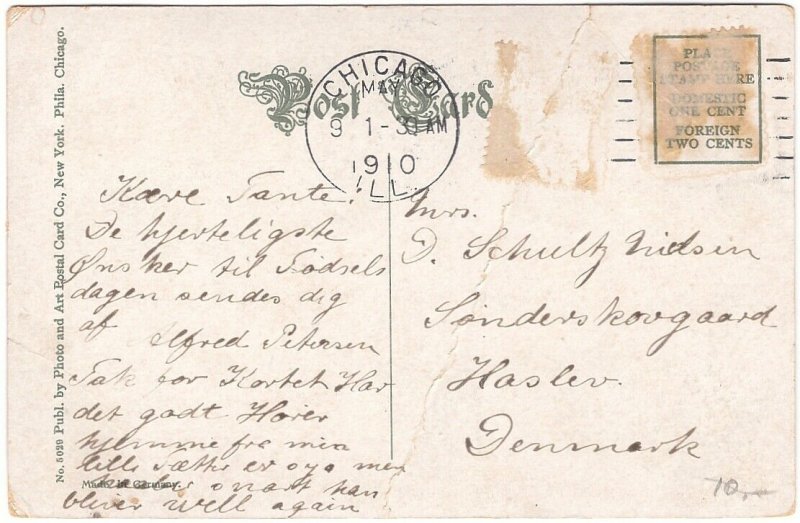 No. 5029 Publ. by Photo and Art Postal Card Co., New York. Phila. Chicago.
Post Card
CHICAGO
MAY
9 1-30AM
1910
ILL.
PLACE
POSTAGE
STAMP HERE
DOMESTIC
ONE CENT
FOREIGN
TWO CENTS
Kære Tante!
De hjerteligste
Ønsker til Fødsels
dagen sendes dig
af Alfred Petersen
Tak for Kortet Har
det godt Hører
hjemme fra min
lille er men
snart kan
bliver well again
Made in Germany.
Mrs.
D. Schultz Nielsen
Sønderskovgaard
Haslev.
Denmark
70,-